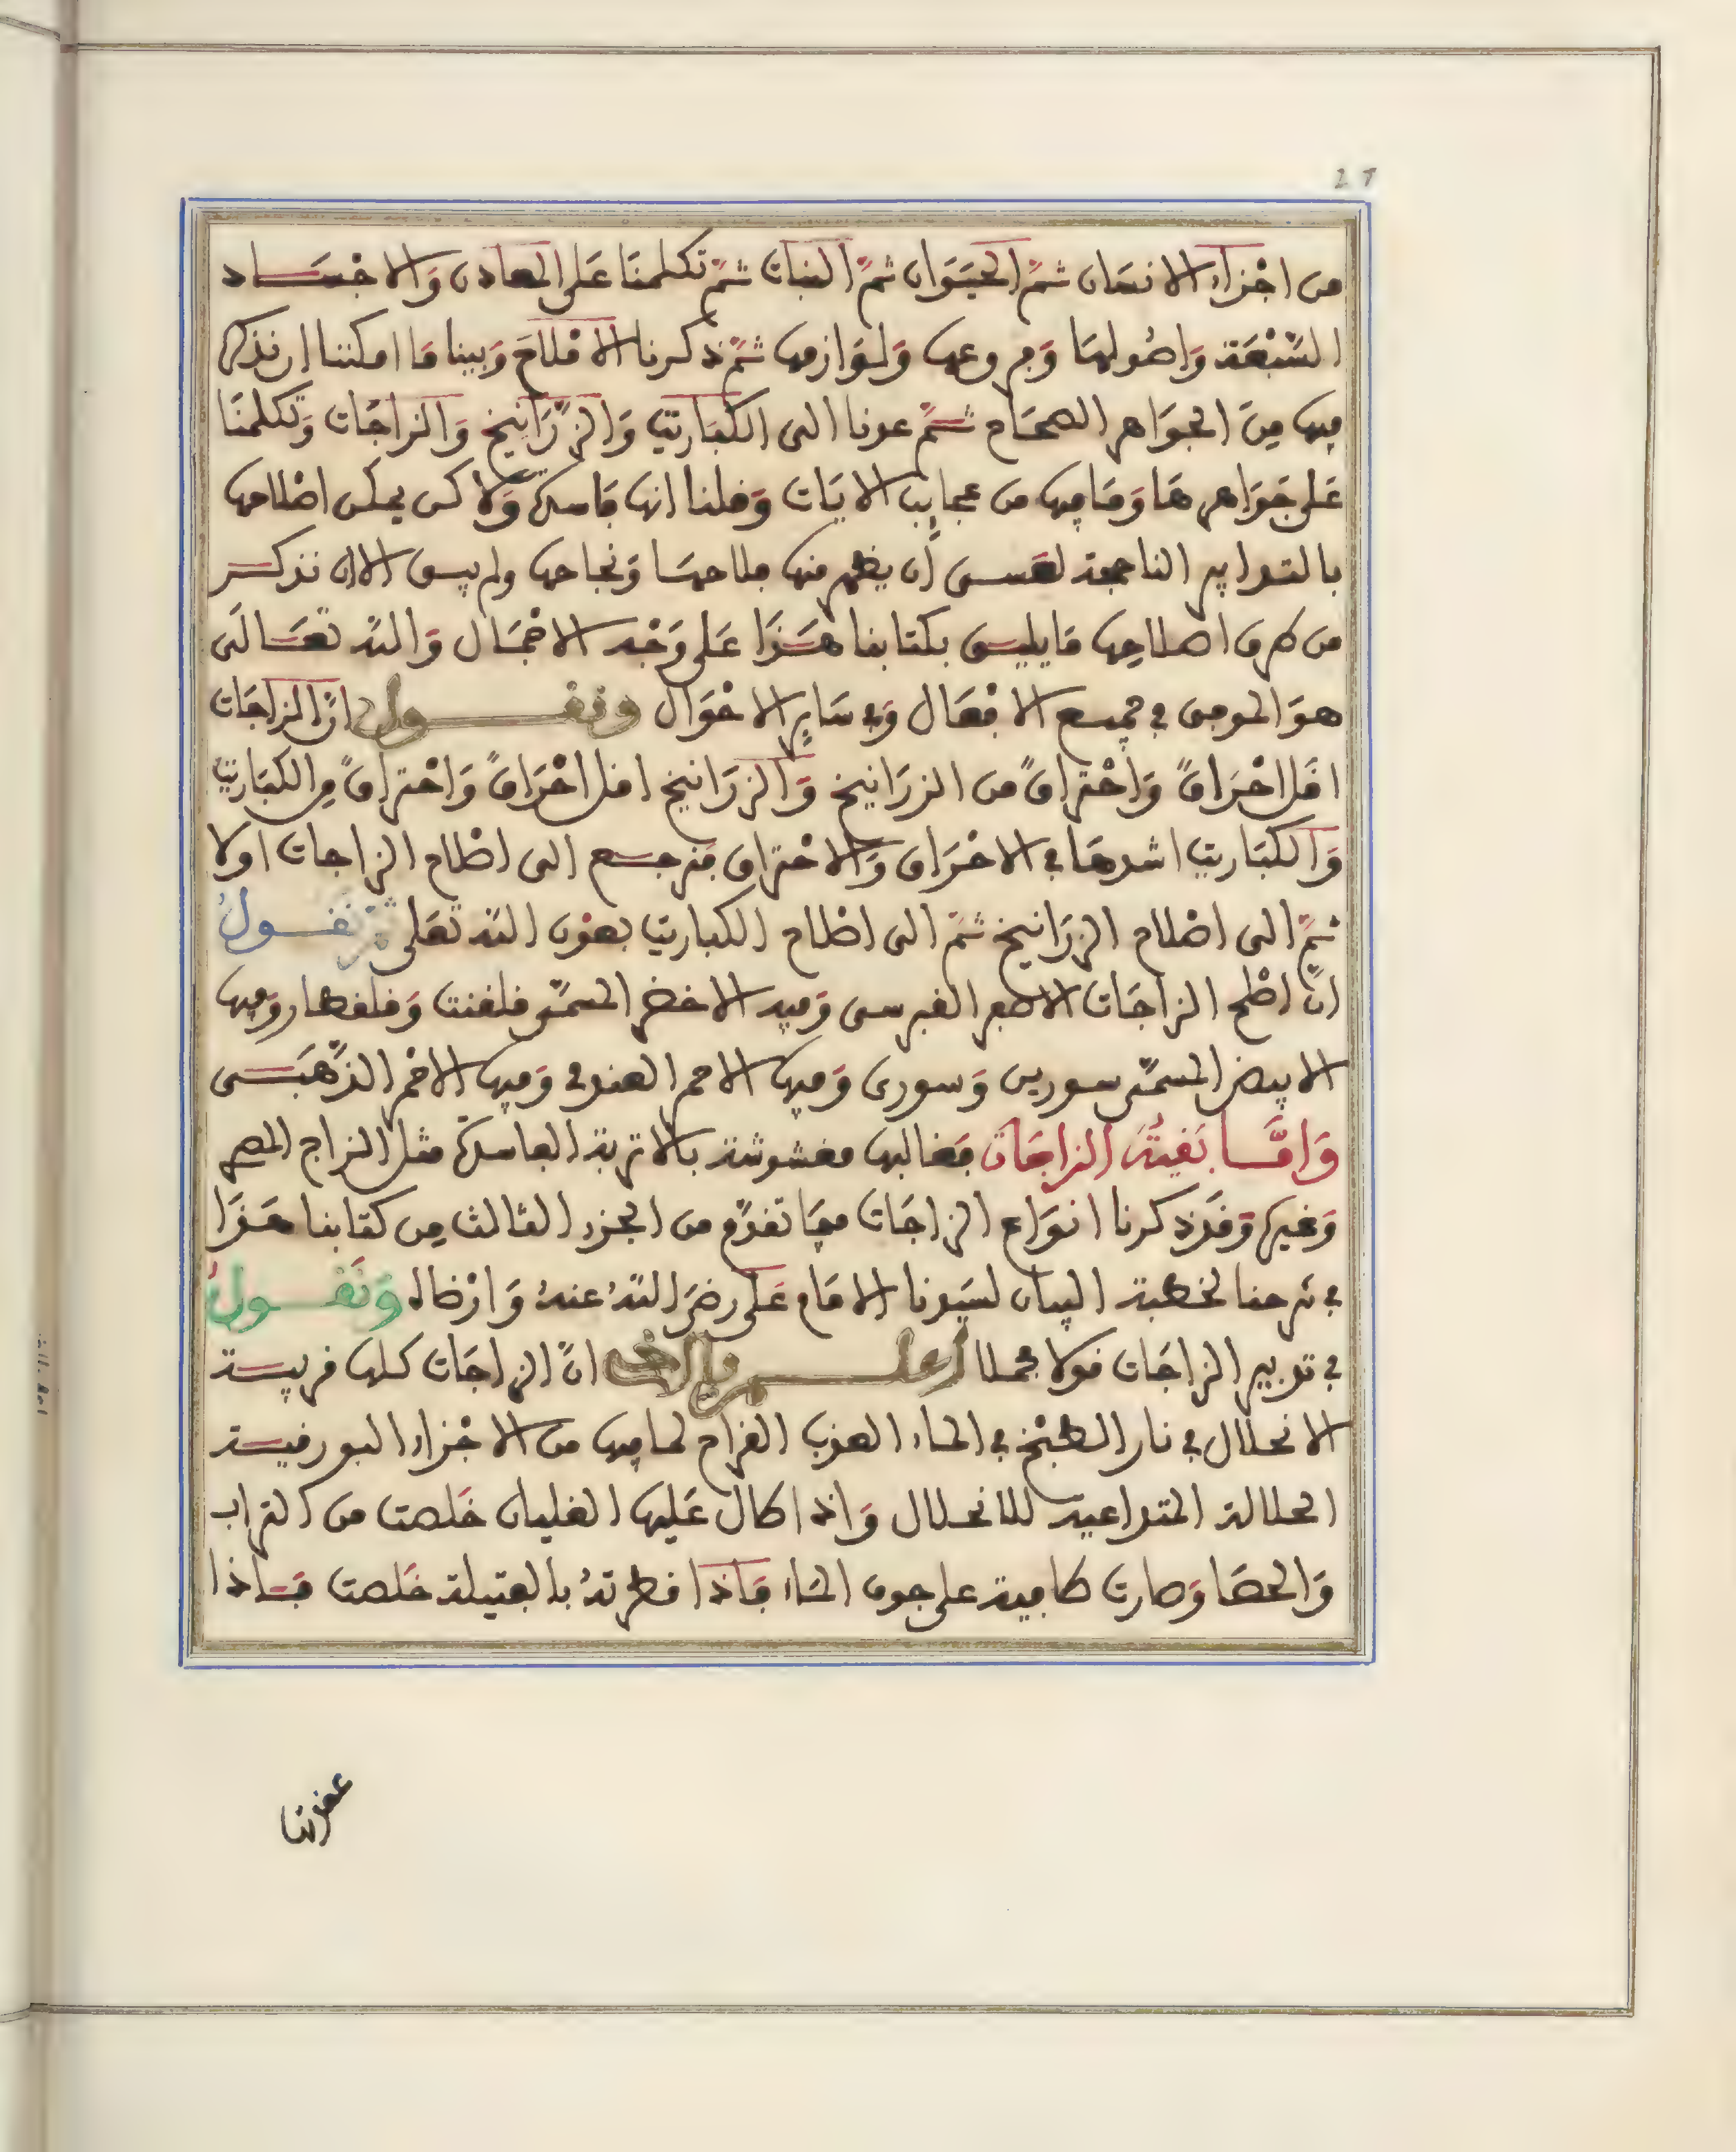 27
من اجزاء الانسان ثم الحيوان ثم النبات ثم تكلمنا على المعادن والاجساد
السبعة واصولها وفروعها ولوازمها ثم ذكرنا الاملاح وبينا ما امكننا ان نذكر
فيها من الجواهر الصحاح ثم عدنا الى الكباريت والزرانيخ والزاجات وتكلمنا
على جواهرها وما فيها من عجايب الايات وقلنا انها فاسدة ولاكن يمكن اصلاحها
بالتدابير الناجعة لعسى ان يظهر منها صلاحها ونجاحها ولم يبق الا ان نذكر
من طرق اصلاحها ما يليق بكتابنا هذا على وجه الاجمال والله تعالى
هو الموفق في جميع الافعال وفي ساير الاحوال ونقول ان الزاجات
اقل احراقا واحتراقا من الزرانيخ والزرانيخ اقل احراقا واحتراقا من الكباريت
والكباريت اشدها في الاحراق والاحتراق فنرجع الى اصلاح الزاجات اولا
ثم الى اصلاح الزرانيخ ثم الى اصلاح الكباريت بعون الله تعلى فنقول
ان اصلح الزاجات الاصفر القبرسي وفيه الاخضر المسمى قلقنت وقلقطار وفيها
الابيض المسمى سورين وسوري وفيها الاحمر الهندي وفيها الاحمر الذهبي
واما بقية الزاجات فغالبها مغشوشة بالاتربة الفاسدة مثل الزاج المصري
وغيره وقد ذكرنا انواع الزاجات فيما تقدم من الجزء الثالث من كتابنا هذا
في شرحنا لخطبة البيان لسيدنا الامام على رضى الله عنه وارضاه ونقول
في تدبير الزاجات قولا مجملا اعلم يا اخي ان الزاجات كلها قريبة
الانحلال في نار الطبخ في الماء العذب القراح لما فيها من الاجزاء البورقية
الحلالة المتداعية للانحلال واذا طال عليها الغليان خلصت من التراب
والحصا وصارت طافية على جوف الماء فاذا قطرته بالفتيلة خلصت فاذا
عقدتها